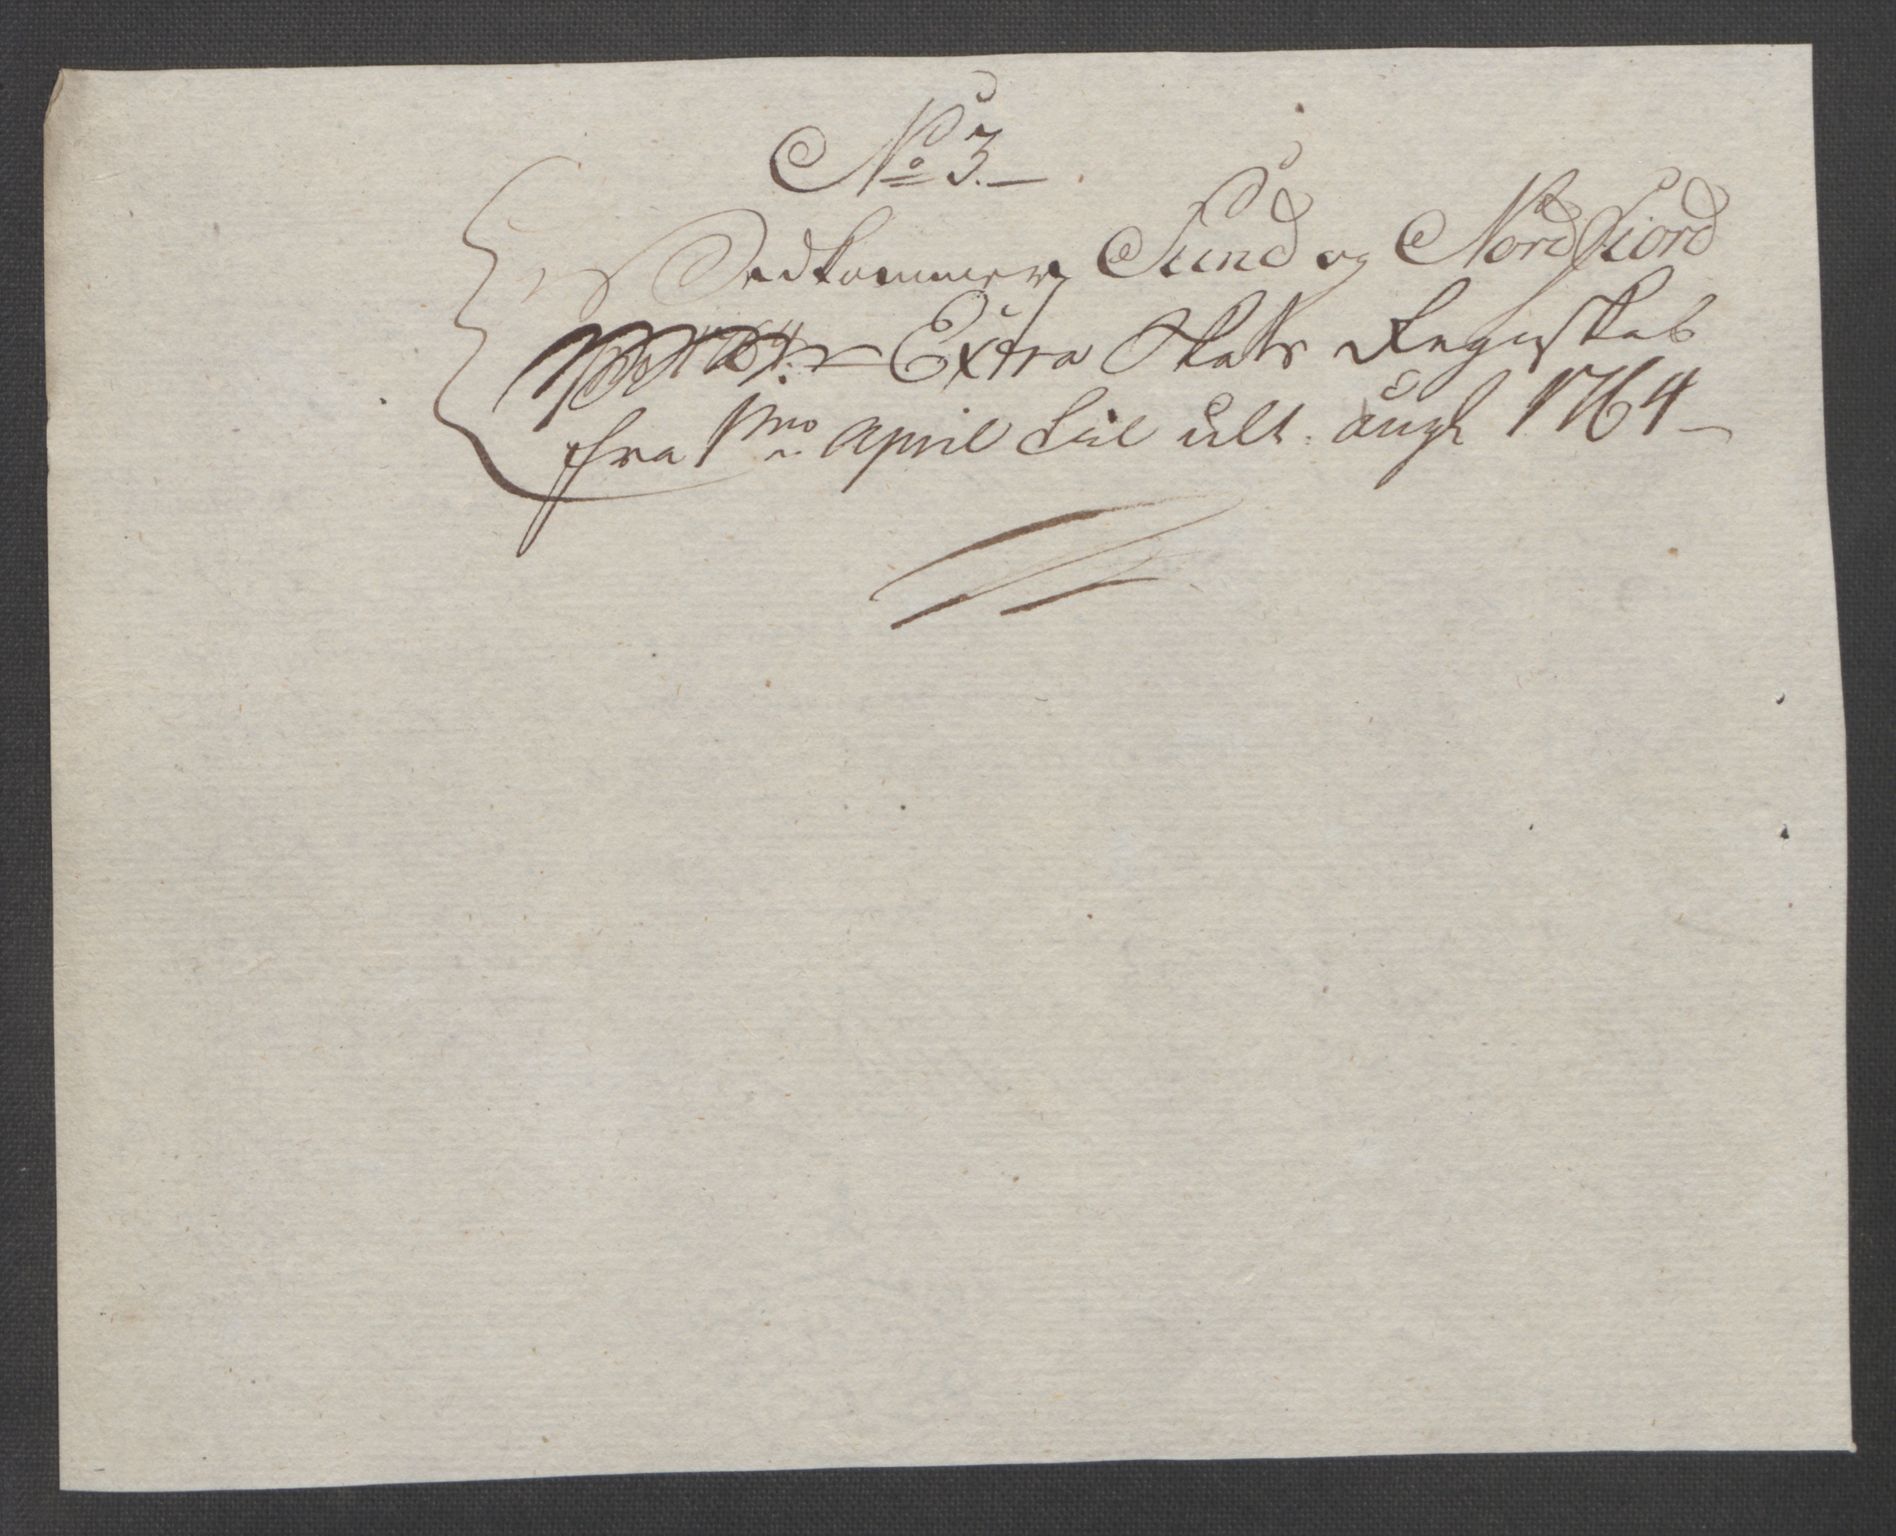 No 3.
Vedkommer Sund og Nordfiord
Extra Skats Regnskab
fra 1mo April til ult. augt 1764